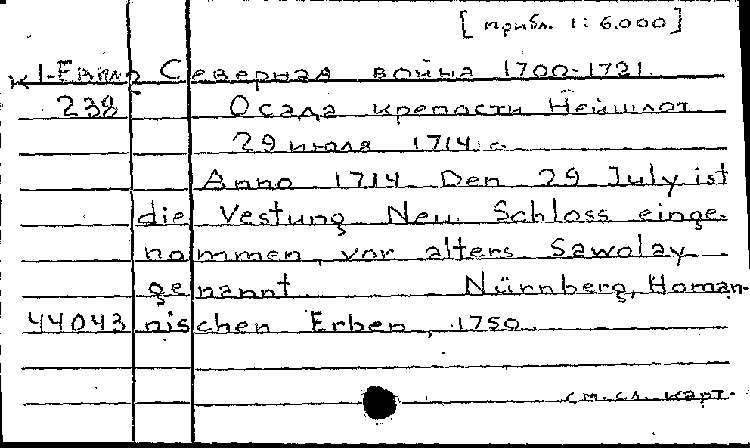 [прибл. 1:6.000]
К 1-Евип Северная война 1700-1721.
238 Осада крепости Нейшлот
29 июля 1714 г.
Anno 1714 Den 29 July ist
die Vestung Neu Schloss einge-
nommen, vor alters Sawolay
genannt Nürnberg, Homan-
44043 nischen Erben, 1750
см. сл. карт.